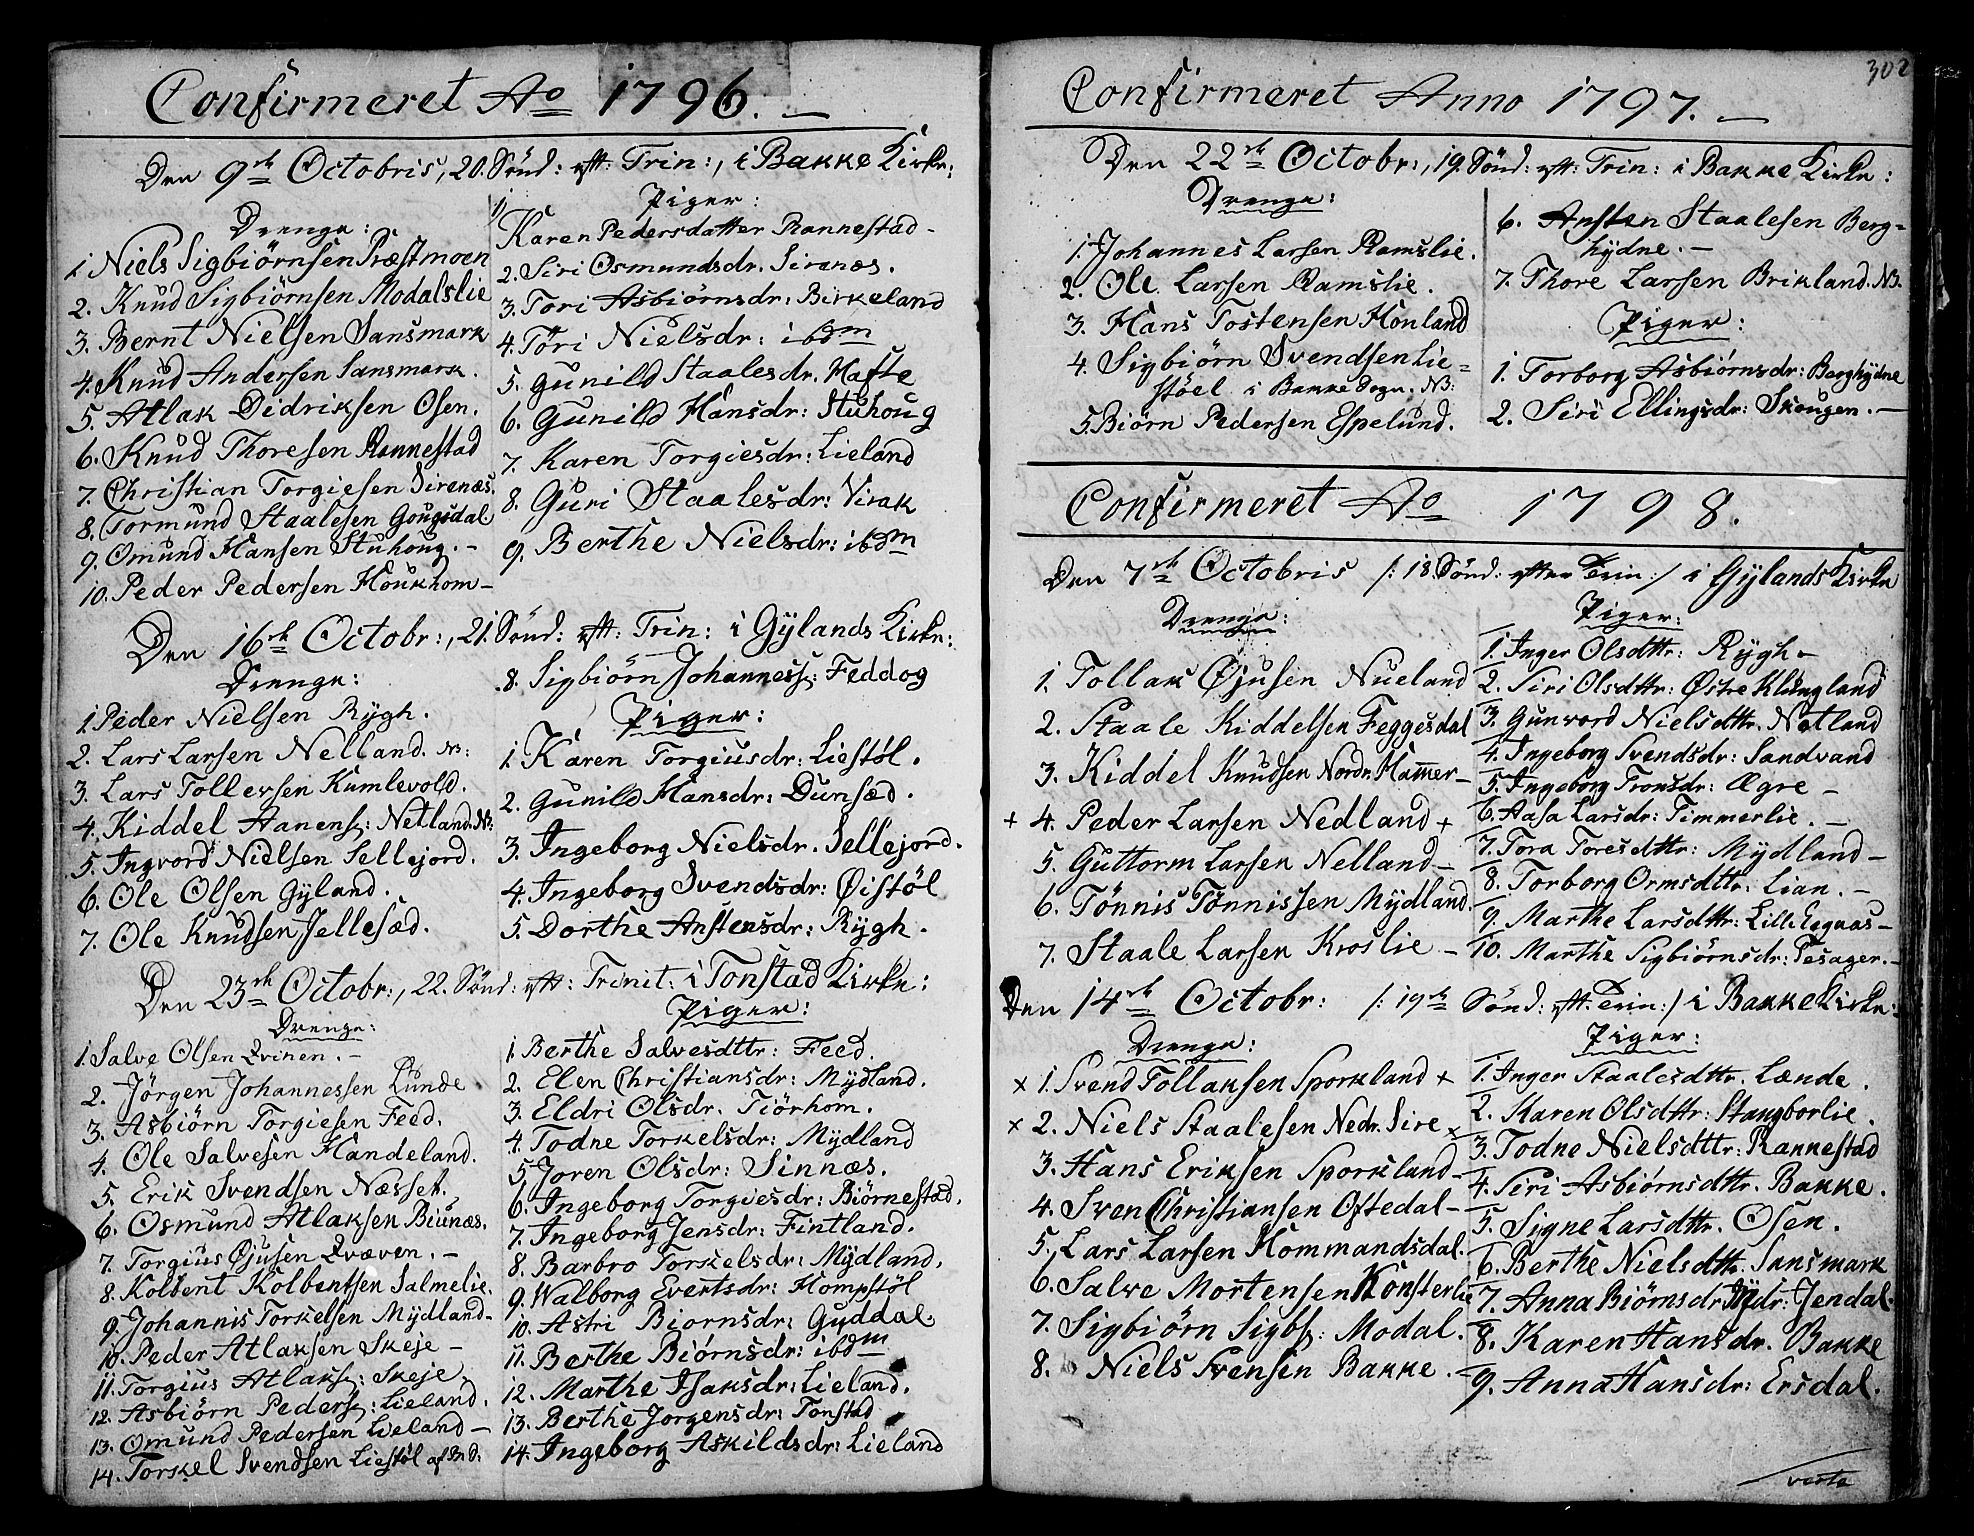 Confirmeret Ao 1796.
Den 9de Octobris, 20. Sönd: eft: Trin:, i Bakke Kirke:
Drenge:
1. Niels Sigbiörnsen Præstmoen
2. Knud Sigbiörnsen Modalslie
3. Bernt Nielsen Sansmark
4. Knud Andersen Sansmark.
5. Atlak Didriksen Osen.
6. Knud Thoresen Rannestad
7. Christian Torgiesen Sirenæs.
8. Tormund Staalesen Gougsdal.
9. Omund Hansen Stuhoug. –
10. Peder Pedersen Houkhom –
Piger:
1. Karen Pedersdatter Rannestad –
2. Siri Osmundsdr. Sirenæs.
3. Tori Asbiörnsdr: Birkeland
4. Töri Nielsdr: ibdm
5. Gunild Staalesdr. Hafte
6. Gunild Hansdr: Stuhoug
7. Karen Torgiesdr: Lieland
8. Guri Staalesdr: Virak
9. Berthe Nielsdr: ibdm
Den 16de Octobr:, 21. Sönd: eft: Trin: i Gylands Kirke:
Drenge:
1. Peder Nielsen Rygh.
2. Lars Larsen Nelland. NB:
3. Lars Tollersen Kumlevold.
4. Kiddel Aanens: Netland. NB:
5. Ingvord Nielsen Sellejord.
6. Ole Olsen Gyland.
7. Ole Knudsen Jellesæd.
8. Sigbiörn Johanness: Feddog
Piger:
1. Karen Torgiusdr: Liestøl.
2. Gunild Hansdr: Dunsæd.
3. Ingeborg Nielsdr. Sellejord.
4. Ingeborg Svendsdr: Øistøl
5. Dorthe Anstensdr: Rygh.
Den 23de Octobr:, 22. Sönd: eft: Trinit: i Tonstad Kirke:
Drenge:
1. Salve Olsen Qvinen. –
2. Jörgen Johannessen Lunde
3. Asbiörn Torgiesen Feed.
4. Ole Salvesen Handeland.
5. Erik Svendsen Næsset.
6. Osmund Atlaksen Biunæs.
7. Torgius Øjusen Qvæven. –
8. Kolbent Kolbentsen Salmelie.
9. Johannis Torkelsen Mydland –
10. Peder Atlaksen Skeje –
11. Torgius Atlaks: Skeje.
12. Asbiörn Peders: Lieland.
13. Omund Pedersen Lieland –
14. Torkel Svendsen Liestöl af B. S.
Piger:
1. Berthe Salvesdttr: Feed.
2. Elen Christiansdr: Mydland.
3. Eldri Olsdr. Tiörhom.
4. Todne Torkelsdr: Mydland
5. Joren Olsdr: Sinnæs.
6. Ingeborg Torgiesdr: Biörnestad.
7. Ingeborg Jensdr: Fintland.
8. Barbro Torkelsdr: Mydland.
9. Walborg Evertsdr: Hompstöl
10. Astri Biornsdr: Guddal.
11. Berthe Biörnsdr: ibdm
12. Marthe Isaksdr: Lieland.
13. Berthe Jorgensdr: Tonstad
14. Ingeborg Askildsdr: Lieland
302
Confirmeret Anno 1797. –
Den 22de Octobr:, 19. Sönd: eft: Trin: i Bakke Kirke:
Drenge:
1. Johannes Larsen Ramslie.
2. Ole Larsen Ramslie.
3. Hans Tostensen Honland
4. Sigbiörn Svendsen Lie=
støel i Bakke Sogn. NB:
5. Biörn Pedersen Espelund.
6. Ansten Staalesen Berg=
hydne. –
7. Thore Larsen Brikland. NB.
Piger:
1. Torborg Asbiörnsdr: Berghydne
2. Siri Ellingsdr: Skougen. –
Confirmeret Ao 1798.
Den 7de Octobris /: 18. Sönd: efter Trin :/ i Gylands Kirke
Drenge:
1. Tollak Øjusen Nueland
2. Staale Kiddelsen Feggesdal
3. Kiddel Knudsen Nordr. Hammer –
+ 4. Peder Larsen Nedland +
5. Guttorm Larsen Nelland –
6. Tönnis Tönnissen Mydland.
7. Staale Larsen Kroslie –
Piger:
1. Inger Olsdttr: Rygh –
2. Siri Olsdttr: Østre Klungland
3. Gunvord Nielsdttr. Netland
4. Ingeborg Svendsdr: Sandvand
5. Ingeborg Tronsdr: Ægre –
6. Aasa Larsdr: Timmerlie. –
7. Tora Toresdttr: Mydland –
8. Torborg Ormsdttr. Lian. –
9. Marthe Larsdttr: Lille Eegaas –
10. Marthe Sigbiörnsdr: Tesager. –
Den 14de Octobr: /: 19de Sönd: eft. Trin :/ i Bakke Kirke:
Drenge:
x 1. Svend Tollaksen Sporkland +
x 2. Niels Staalesen Nedr. Sire x
3. Hans Eriksen Sporkland –
4. Sven Christiansen Oftedal –
5. Lars Larsen Hommandsdal.
6. Salve Mortensen Konsterlie
7. Sigbiörn Sigbs: Modal.
8. Niels Svensen Bakke. –
Piger:
1. Inger Staalesdttr. Lænde.
2. Karen Olsdttr: Stangborlie.
3. Todne Nielsdttr: Rannestad
4. Siri Asbiörnsdttr. Bakke.
5. Signe Larsdttr. Osen.
6. Berthe Nielsdttr. Sansmark
7. Anna Biörnsdr: Ndr: Jendal.
8. Karen Hansdr. Bakke
9. Anna Hansdr: Ersdal.
verte